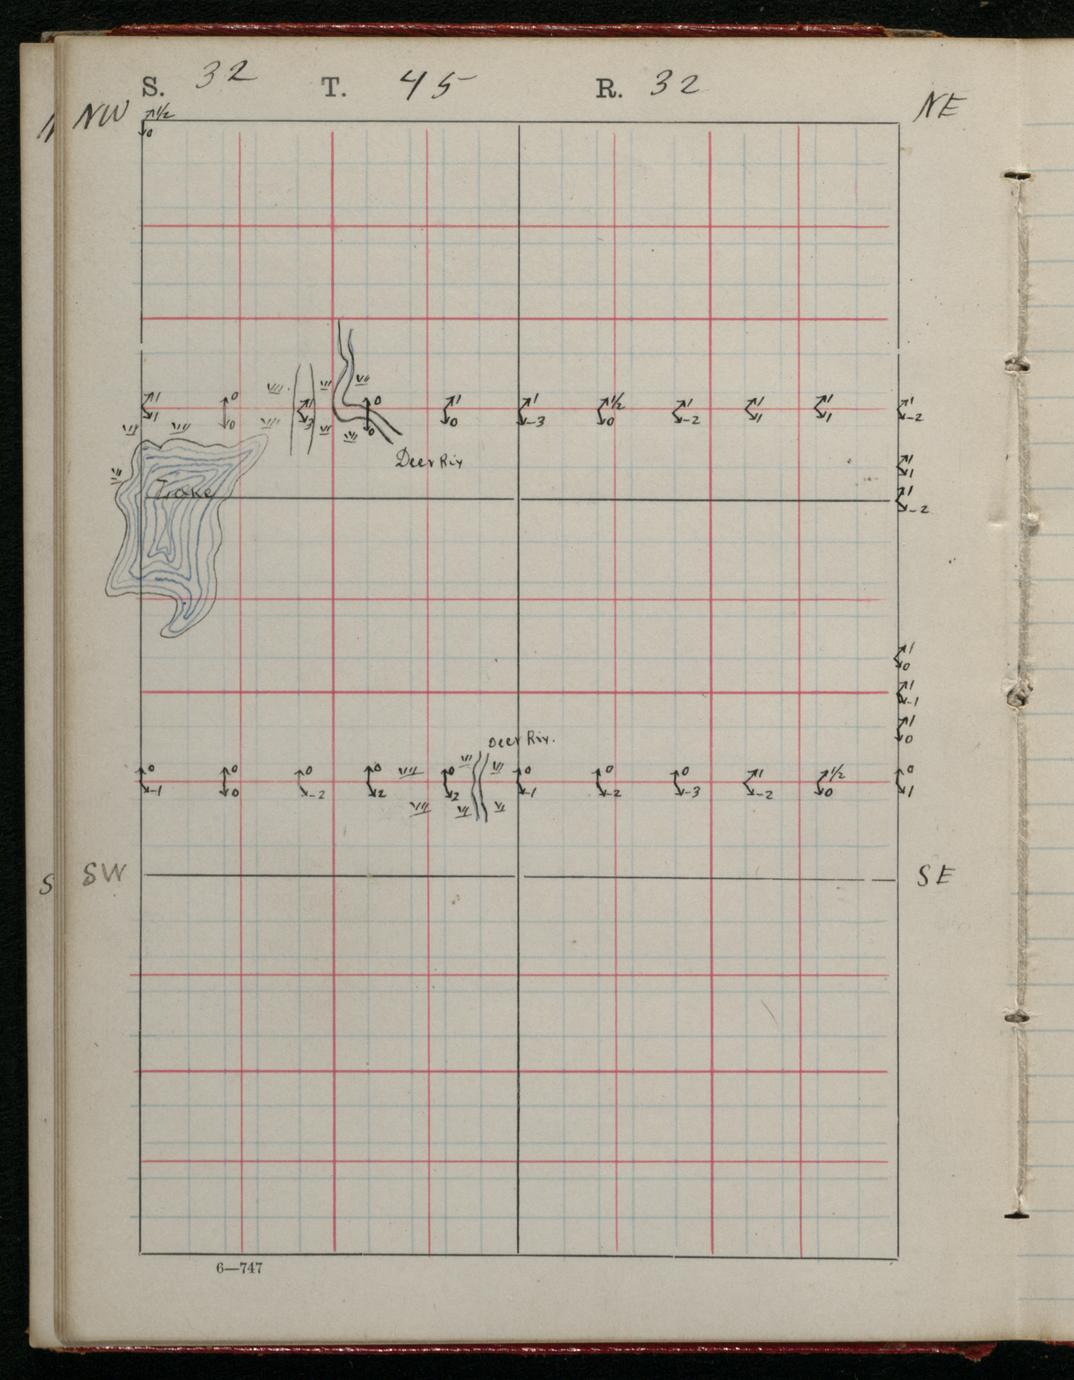 S. 32 T. 45 R. 32
NW NE
1/2
0
1 0 1 0 1 1 1/2 1 1 1 1
1 0 3 0 0 -3 0 -2 1 1 -2
Deer Riv
1
1
Lake
1
-2
1
0
1
-1
1
0
Deer Riv.
0 0 0 0 0 0 0 0 1 1/2 0
-1 0 -2 2 2 -1 -2 -3 -2 0 1
S SW SE
6—747